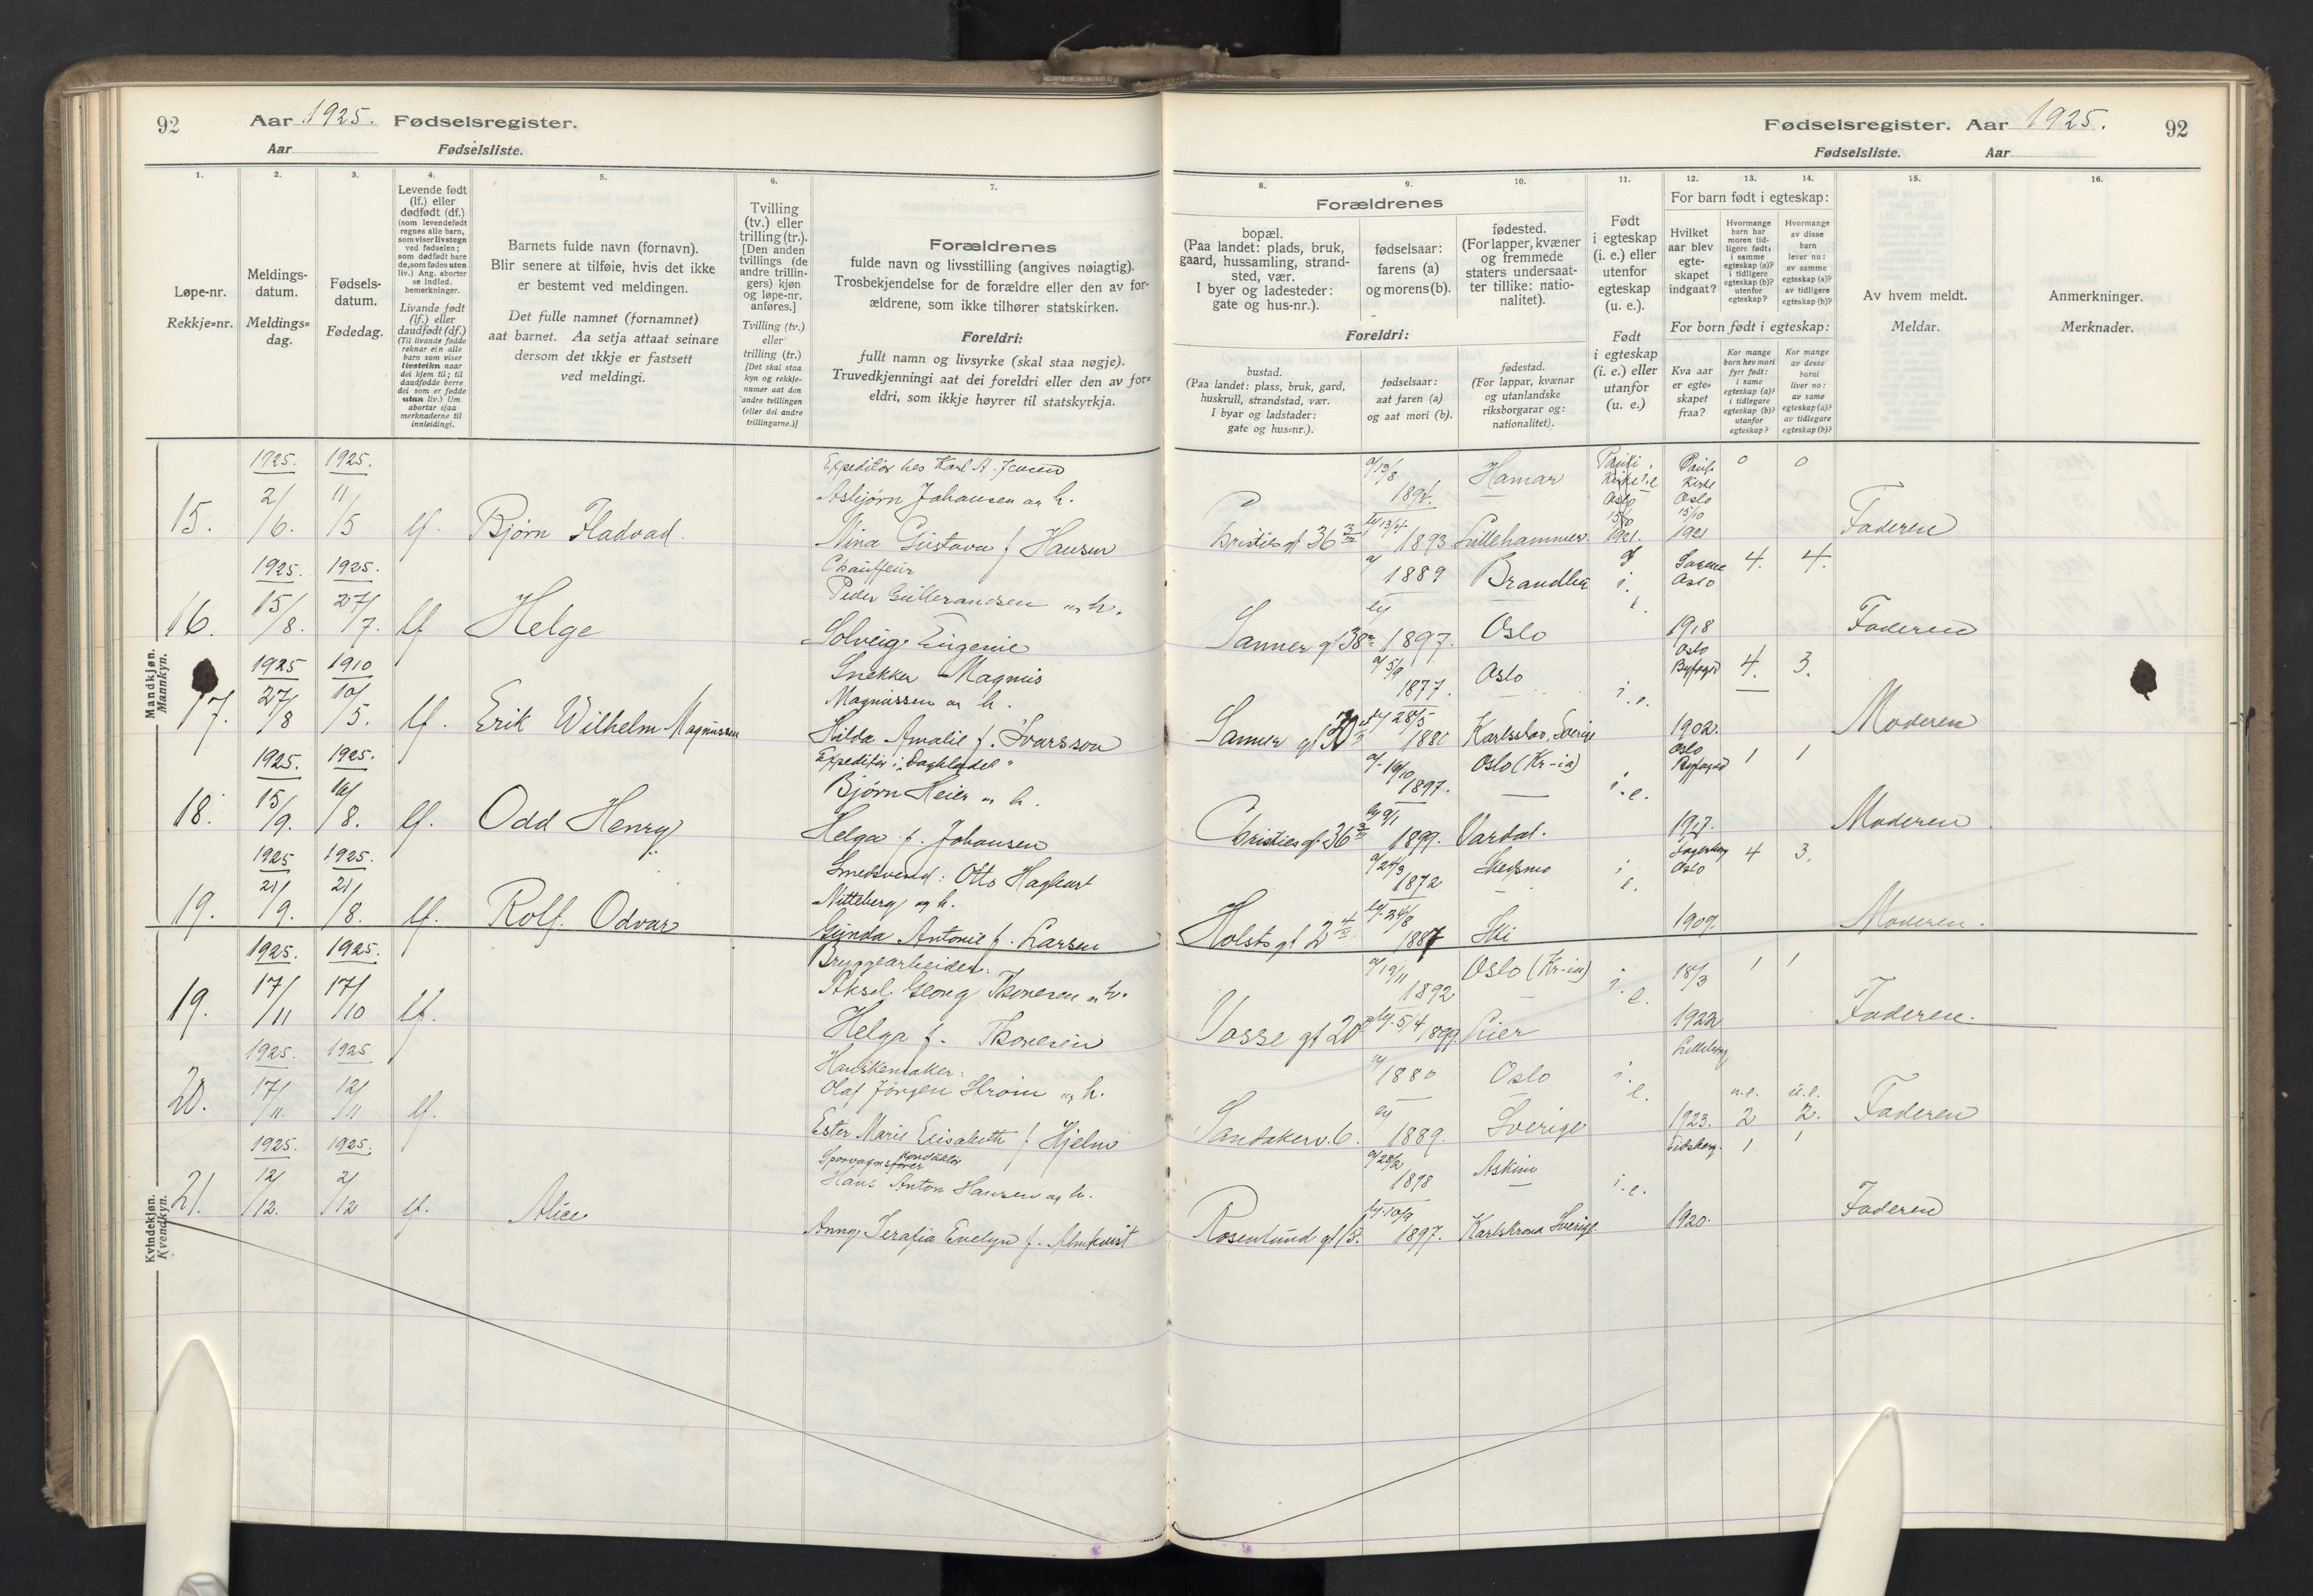 92
Aar 1925. Fødselsregister.
Aar Fødselsliste.
1.
2.
3.
4.
5.
6.
7.
Løpe-nr.
Rekkje=nr.
Meldings-
datum.
Meldings=
dag.
Fødsels-
datum.
Fødedag.
Levende født
(lf.) eller
dødfødt (df.)
(som levendefødt
regnes alle barn,
som viser livstegn
ved fødselen;
som dødfødt bare
de, som fødes uten
liv.) Ang. aborter
se indled.
bemerkninger.
Livande født
(lf.) eller
daudfødt (df.)
(Til livande fødde
reknar ein alle
barn som viser
livsteikn naar
dei kjem til; til
daudfødde berre
dei som er fødde
utan liv.) Um
abortar sjaa
merknaderne til
innleidingi.
Barnets fulde navn (fornavn).
Blir senere at tilføie, hvis det ikke
er bestemt ved meldingen.
Det fulle namnet (fornamnet)
aat barnet. Aa setja attaat seinare
dersom det ikkje er fastsett
ved meldingi.
Tvilling
(tv.) eller
trilling (tr.).
[Den anden
tvillings (de
andre trillin-
gers) kjøn
og løpe-nr.
anføres.]
Tvilling (tv.)
eller
trilling (tr.)
[Det skal staa
kyn og rekkje-
numer aat den
andre tvillingen
(eller dei andre
trillingarne.)]
Forældrenes
fulde navn og livsstilling (angives nøiagtig).
Trosbekjendelse for de forældre eller den av for-
ældrene, som ikke tilhører statskirken.
Foreldri:
fullt namn og livsyrke (skal staa nøgje).
Truvedkjenningi aat dei foreldri eller den av for=
eldri, som ikkje høyrer til statskyrkja.
Mandkjøn.
Mannkyn.
1925. 1925.
15. 2/6. 11/5 lf. Bjørn Fladvad.
Expeditør hos Karl A. Jensen
Asbjørn Johansen og h.
Nina Gustava f Hansen
1925. 1925.
16. 15/8. 27/7. lf Helge
Chauffeur
Peder Gulbrandsen og h.
Solveig Eugenie
1925 1910
17. 27/8 10/5. lf. Erik Wilhelm Magnussen
Snekker Magnus
Magnussen og h.
Hilda Amalie f. Ivarsson
1925. 1925.
18. 15/9. 16/8. lf. Odd Henry
Expeditør i "Dagbladet"
Bjørn Heier og h.
Helga f. Johansen
1925 1925.
19. 21/9. 21/8. lf. Rolf. Odvar
Smedsvend. Otto Hagbart
Nitteberg og h.
Gunda Antonie f. Larsen
1925. 1925.
19. 17/11 17/10 lf.
Bryggearbeider.
Aksel Georg Thoresen og h.
Helga f. Thoresen
1925. 1925
20. 17/11. 12/11 lf.
Hanskemaker.
Olaf Jørgen Strøm og h.
Ester Marie Elisabeth f Hjelm
1925. 1925.
21. 12/12. 2/12 lf. Alice
Sporvogns konduktør
Hans Anton Hansen og h.
Anny Serafia Evelyn f. Almkvist
Kvindekjøn.
Kvendkyn.
Fødselsregister. Aar 1925. 92
Fødselsliste. Aar
8.
9.
10.
11.
12.
13.
14.
15.
16.
Forældrenes
bopæl.
(Paa landet: plads, bruk,
gaard, hussamling, strand-
sted, vær.
I byer og ladesteder:
gate og hus-nr.).
fødselsaar:
farens (a)
og morens (b).
fødested.
(For lapper, kvæner
og fremmede
staters undersaat-
ter tillike: natio-
nalitet).
Foreldri:
bustad.
(Paa landet: plass, bruk, gard,
huskrull, strandstad, vær.
I byar og ladstader:
gate og hus=nr.).
fødselsaar:
aat faren (a)
og aat mori (b).
fødestad.
(For lappar, kvænar
og utanlandske
riksborgarar og:
nationalitet).
Født
i egteskap
(i. e.) eller
utenfor
egteskap
(u. e.).
Født
i egteskap
(i. e.) eller
utanfor
(u. e.)
For barn født i egteskap:
Hvilket
aar blev
egte-
skapet
indgaat?
Hvormange
barn har
moren tid-
ligere født:
i samme
egteskap (a)?
i tidligere
egteskap (b)?
utenfor
egteskap?
Hvormange
av disse
barn
lever nu:
av samme
egteskap (a)?
av tidligere
egteskap (b)?
For born født i egteskap:
Kva aar
er egte=
skapet
fraa?
Kor mange
born hev mori
fyrr født:
i same
egteskap (a)?
i tidlegare
egteskap (b)?
utanfor
egteskap?
Kor mange
av desse
borni
liver no:
av same
egteskap (a)?
av tidlegare
egteskap (b)?
Av hvem meldt.
Meldar.
Anmerkninger.
Merknader.
a/ 13/8 1894. Hamar Pauli Kirke i.e Oslo 15/10 1921. Pauli Kirke Oslo 15/10 1921 0 0
Kristies gt 36 b/ 13/4 1893 Lillehammer. Faderen
a/ 1889 Brandbu i. e. Sagene Oslo 4. 4.
Sanner gt 38 b/ 1897. Oslo 1918 Faderen
a/ 5/9 1877. Oslo i. e. Oslo Byfoged 4. 3.
Sanner gt 30 b/ 28/5 1880 Karlstad. Sverige 1902. Moderen
a/ 19/10 1897. Oslo (Kr-ia) i. e. Oslo Byfoged 1 1
Christies gt. 36 b/ 9/1 1899. Vardal. 1917. Moderen
a/ 24/3 1872 Skedsmo i e. Fagerborg Oslo 4 3.
Holsts gt 2 b/. 24/8 1887 Ski 1909. Moderen.
a/ 19/11 1892 Oslo (Kr-ia) i. e. 18/3 1 1
Vosse gt 20 b/. 5/4 1899. Lier 1922 Faderen.
a/ 1880 Oslo i. e. Lilleborg u.e. u.e.
Sandakerv. 6. b/ 1889. Sverige 1923. 2 2. Faderen
a/ 28/2 1898 Askim i. e. Eidsberg. 1 1
Rosenlund gt 15. b/. 10/9 1897. Karlskrona Sverige. 1920. Faderen